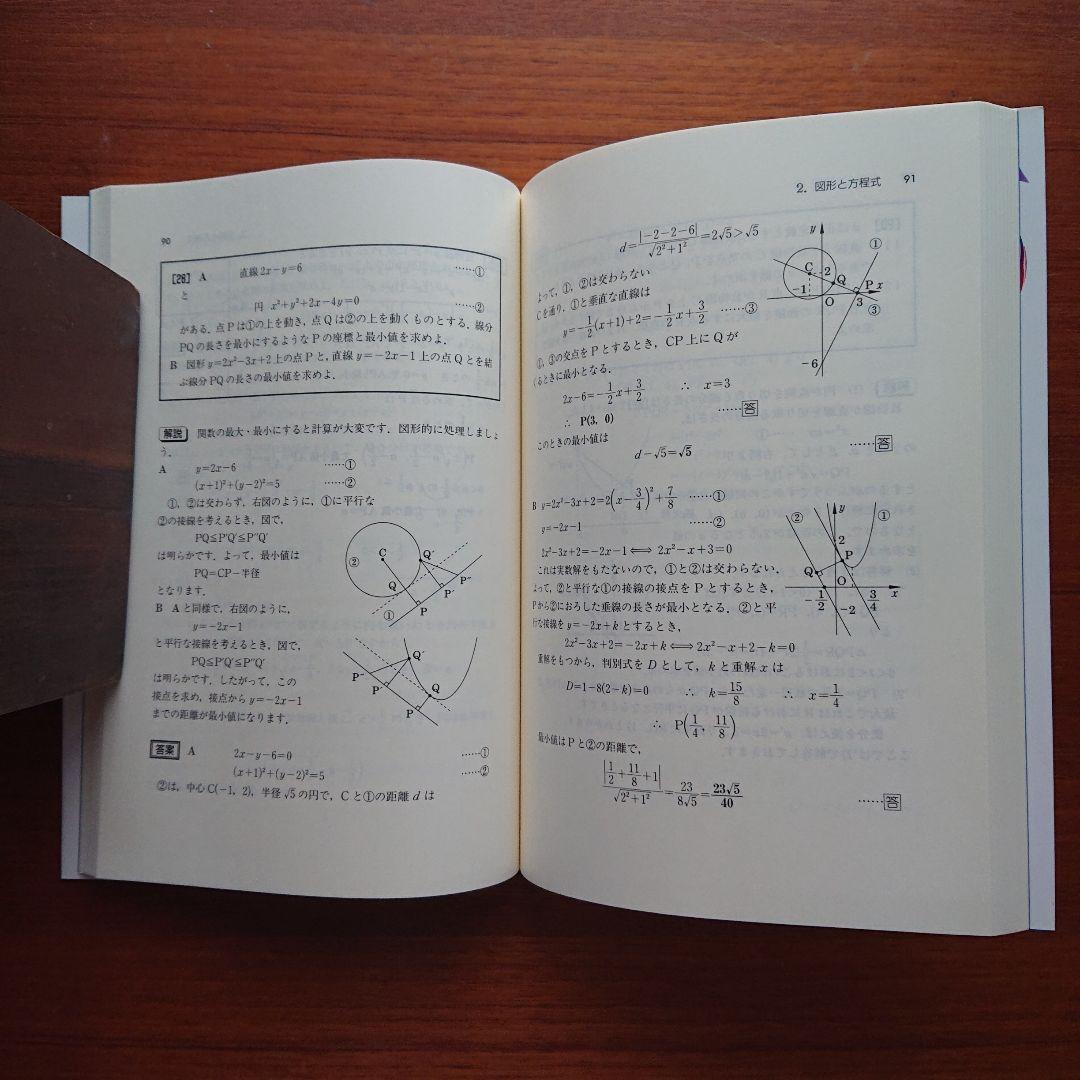 90
[26] A 直線 2x－y＝6 ……①
と
円 x²＋y²＋2x－4y＝0 ……②
がある. 点Pは①の上を動き, 点Qは②の上を動くものとする. 線分
PQの長さを最小にするようなPの座標と最小値を求めよ.
B 図形 y＝2x²－3x＋2 上の点Pと, 直線 y＝－2x－1 上の点Qとを結
ぶ線分PQの長さの最小値を求めよ.
解説 関数の最大・最小にすると計算が大変です. 図形的に処理しましょ
う.
A y＝2x－6 ……①
(x＋1)²＋(y－2)²＝5 ……②
①, ②は交わらず, 右図のように, ①に平行な
②の接線を考えるとき, 図で,
PQ≦P′Q′≦P″Q′
は明らかです. よって, 最小値は
PQ＝CP－半径
となります.
B Aと同様で, 右図のように,
y＝－2x－1
と平行な接線を考えるとき, 図で,
PQ≦P′Q′≦P″Q′
は明らかです. したがって, この
接点を求め, 接点から y＝－2x－1
までの距離が最小値になります.
② C Q′ Q P″ P′ P ①
P″ Q′ P′ Q P
答案 A 2x－y－6＝0 ……①
(x＋1)²＋(y－2)²＝5 ……②
②は, 中心C(－1, 2), 半径√5の円で, Cと①の距離dは
2. 図形と方程式 91
d＝|－2－2－6|/√(2²＋1²)＝2√5＞√5
よって, ①, ②は交わらない
Cを通り, ①と垂直な直線は
y＝－1/2(x＋1)＋2＝－1/2x＋3/2 ……③
①, ③の交点をPとするとき, CP上にQが
くるときに最小となる.
2x－6＝－1/2x＋3/2 ∴ x＝3
∴ P(3, 0) ……答
このときの最小値は
d－√5＝√5 ……答
y ① C 2 Q －1 O 3 P x ③ －6
B y＝2x²－3x＋2＝2(x－3/4)²＋7/8 ……①
y＝－2x－1 ……②
2x²－3x＋2＝－2x－1⟺2x²－x＋3＝0
これは実数解をもたないので, ①と②は交わらない.
よって, ②と平行な①の接線の接点をPとするとき,
Pから②におろした垂線の長さが最小となる. ②と平
行な接線を y＝－2x＋k とするとき,
2x²－3x＋2＝－2x＋k⟺2x²－x＋2－k＝0
重解をもつから, 判別式をDとして, kと重解xは
D＝1－8(2－k)＝0 ∴ k＝15/8 ∴ x＝1/4
∴ P(1/4, 11/8)
最小値はPと②の距離で,
|1/2＋11/8＋1|/√(2²＋1²)＝23/8√5＝23√5/40 ……答
② y ① 2 P Q O －1/2 －2 3/4 x